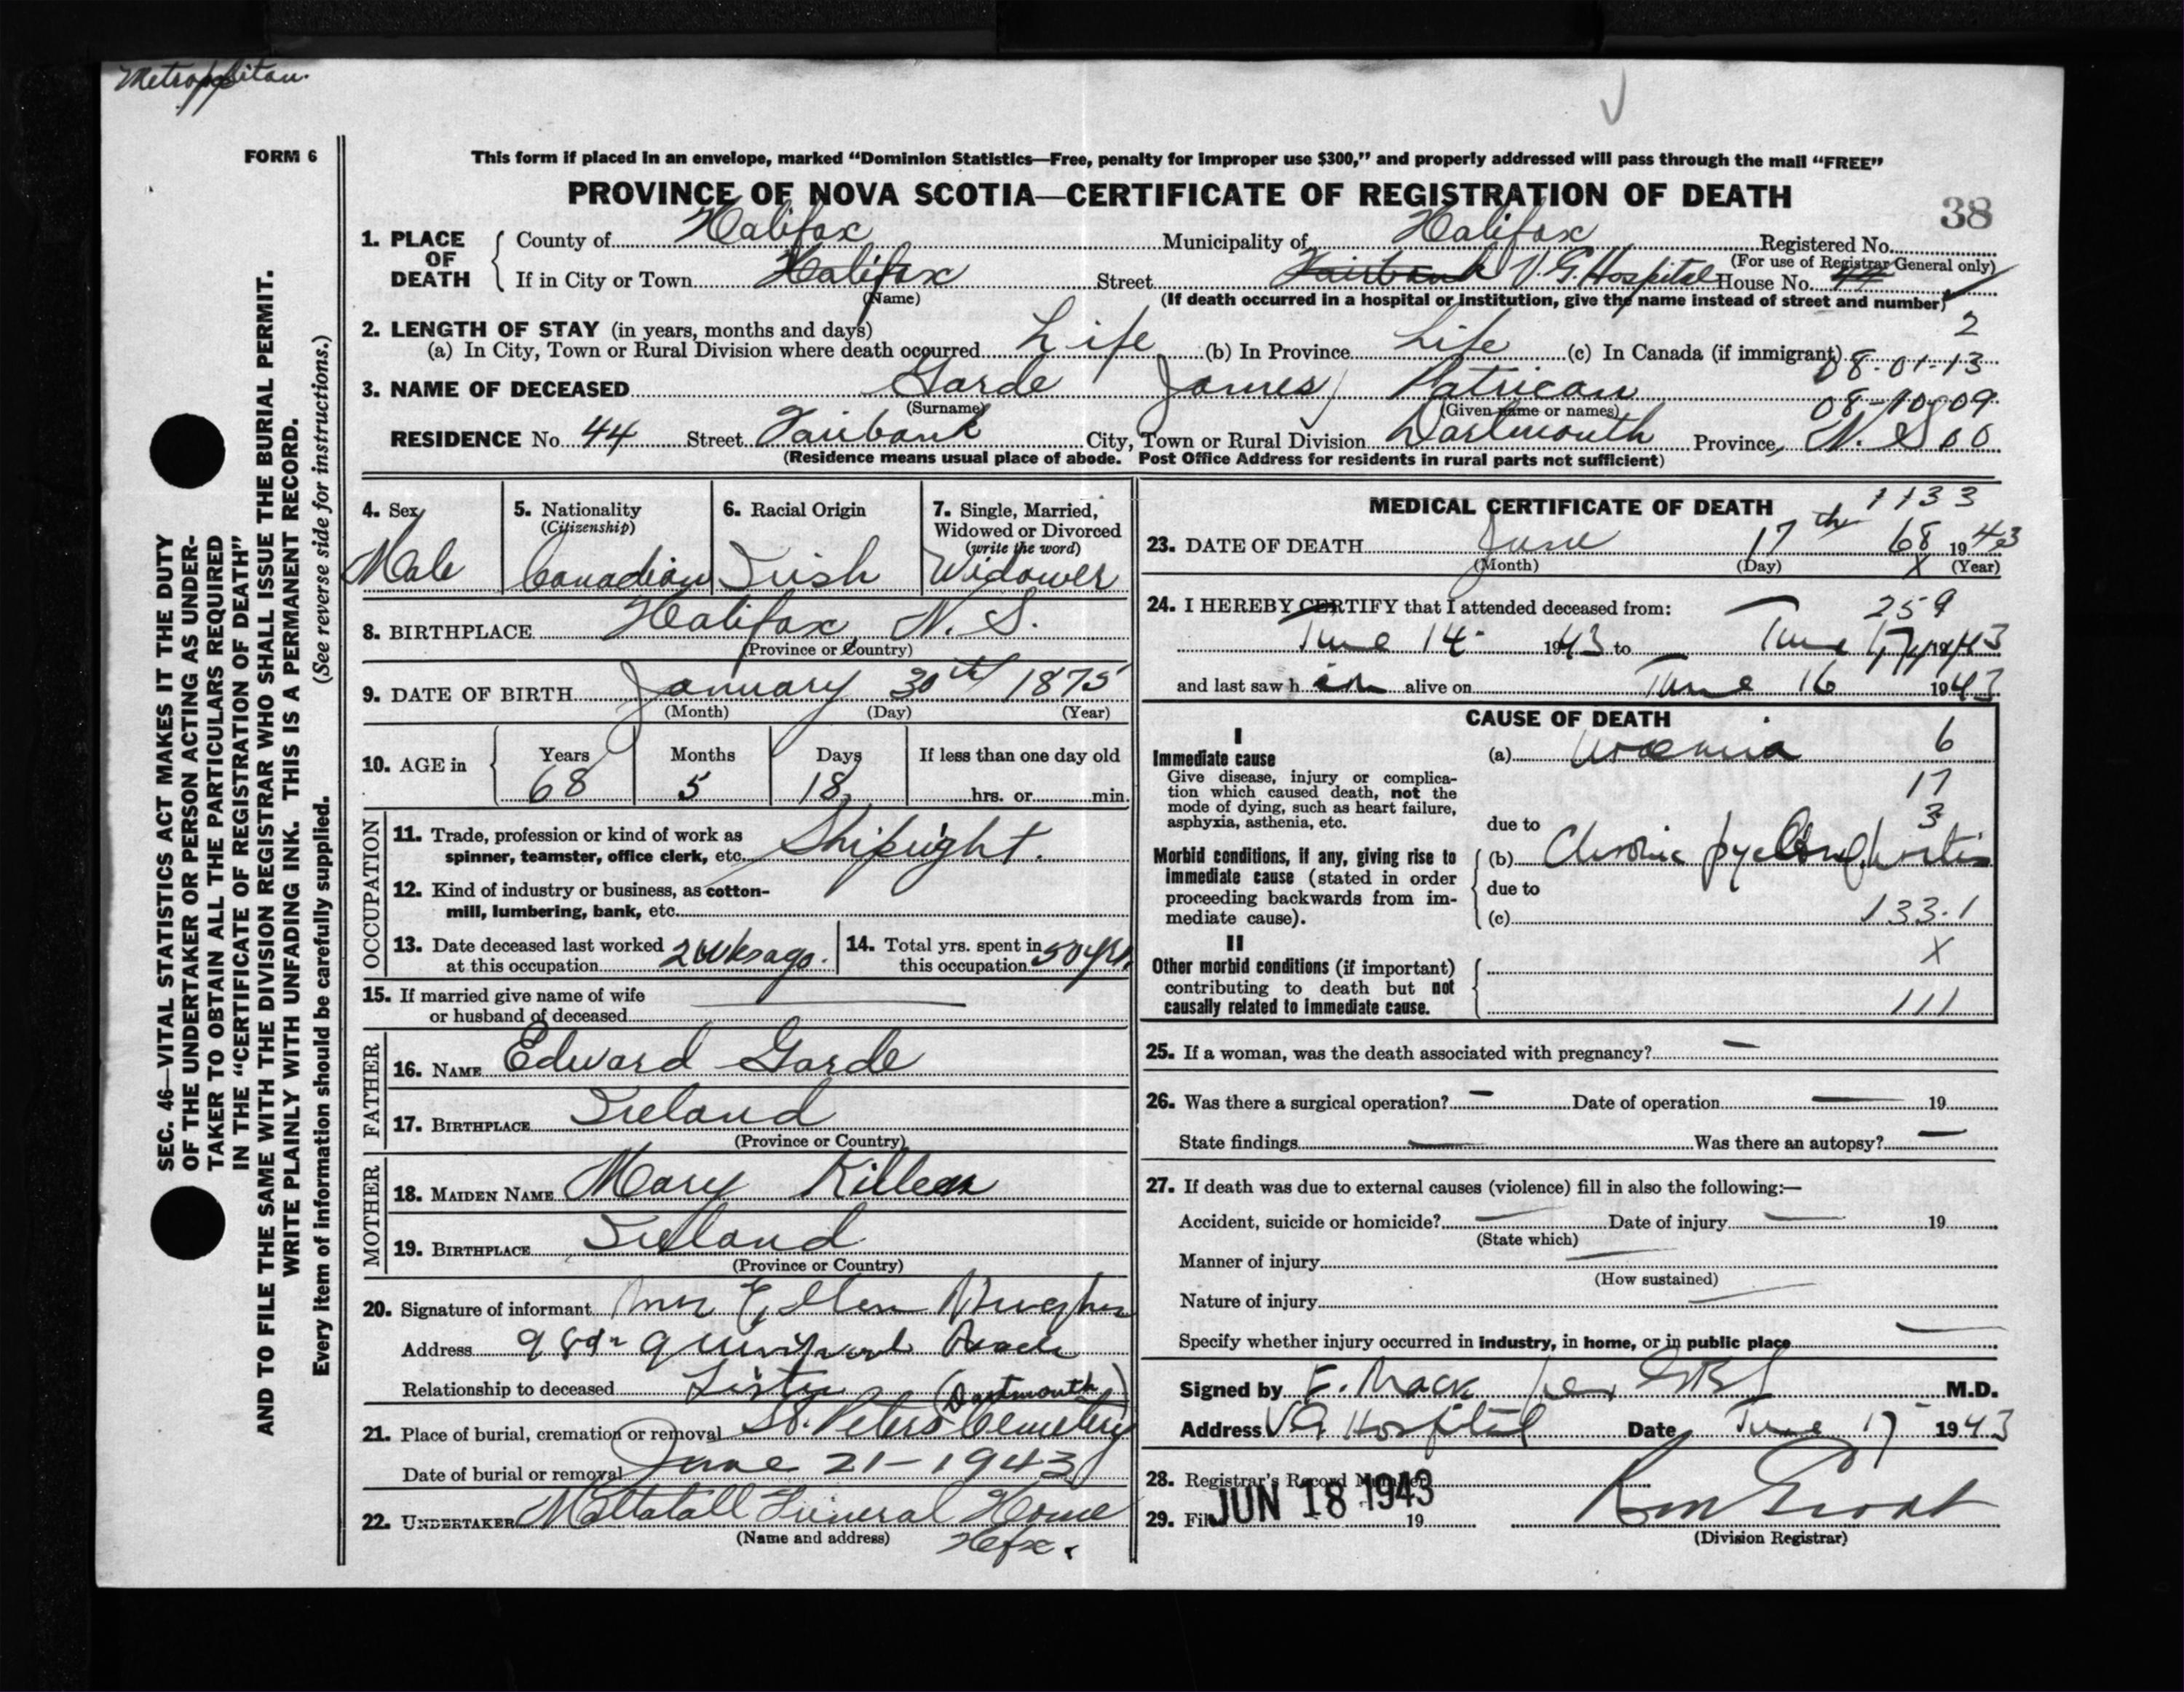 Metropolitan.
FORM 6
This form if placed in an envelope, marked “Dominion Statistics—Free, penalty for improper use $300,” and properly addressed will pass through the mail “FREE”
PROVINCE OF NOVA SCOTIA—CERTIFICATE OF REGISTRATION OF DEATH
38
1. PLACE OF DEATH County of Halifax Municipality of Halifax Registered No.
(For use of Registrar General only)
If in City or Town Halifax Street Fairbank V. G. Hospital House No. 44
(Name) (If death occurred in a hospital or institution, give the name instead of street and number)
2. LENGTH OF STAY (in years, months and days) 2
(a) In City, Town or Rural Division where death occurred Life (b) In Province Life (c) In Canada (if immigrant) 08-01-13
3. NAME OF DECEASED Garde James Patrican
(Surname) (Given name or names) 08-10-09
RESIDENCE No. 44 Street Fairbank City, Town or Rural Division Dartmouth Province N. S 00
(Residence means usual place of abode. Post Office Address for residents in rural parts not sufficient)
4. Sex Male
5. Nationality (Citizenship) Canadian
6. Racial Origin Irish
7. Single, Married, Widowed or Divorced (write the word) Widower
8. BIRTHPLACE Halifax, N. S.
(Province or Country)
9. DATE OF BIRTH January 30th 1875
(Month) (Day) (Year)
10. AGE in Years 68 Months 5 Days 18 If less than one day old
hrs. or min.
OCCUPATION
11. Trade, profession or kind of work as spinner, teamster, office clerk, etc. Shipright.
12. Kind of industry or business, as cotton-mill, lumbering, bank, etc.
13. Date deceased last worked at this occupation 2 wks ago.
14. Total yrs. spent in this occupation 50 yrs.
15. If married give name of wife or husband of deceased
FATHER
16. NAME Edward Garde
17. BIRTHPLACE Ireland
(Province or Country)
MOTHER
18. MAIDEN NAME Mary Killeen
19. BIRTHPLACE Ireland
(Province or Country)
20. Signature of informant Mrs Ellen Hughes
Address Road
Relationship to deceased Sister
21. Place of burial, cremation or removal St. Peters Cemetery (Dartmouth)
Date of burial or removal June 21-1943
22. UNDERTAKER Mattatall Funeral Home
(Name and address) Hfx.
MEDICAL CERTIFICATE OF DEATH 1133
23. DATE OF DEATH June 17th 68 1943
(Month) (Day) X (Year)
24. I HEREBY CERTIFY that I attended deceased from: 259
June 14 1943 to June 17 1943
and last saw him alive on June 16 1943
CAUSE OF DEATH
I
Immediate cause (a) Uraemia 6
Give disease, injury or complication which caused death, not the mode of dying, such as heart failure, asphyxia, asthenia, etc.
17
due to 3
Morbid conditions, if any, giving rise to immediate cause (stated in order proceeding backwards from immediate cause).
(b) Chronic pyelonephritis
due to
(c) 133.1
II X
Other morbid conditions (if important) contributing to death but not causally related to immediate cause.
111
25. If a woman, was the death associated with pregnancy? —
26. Was there a surgical operation? — Date of operation — 19
State findings — Was there an autopsy? —
27. If death was due to external causes (violence) fill in also the following:—
Accident, suicide or homicide? — Date of injury — 19
(State which)
Manner of injury —
(How sustained)
Nature of injury —
Specify whether injury occurred in industry, in home, or in public place —
Signed by F. Mack per M.D.
Address V.G. Hospital Date June 17 1943
28. Registrar's Record Number
29. Filed JUN 18 1943 19
(Division Registrar)
SEC. 46—VITAL STATISTICS ACT MAKES IT THE DUTY
OF THE UNDERTAKER OR PERSON ACTING AS UNDER-
TAKER TO OBTAIN ALL THE PARTICULARS REQUIRED
IN THE “CERTIFICATE OF REGISTRATION OF DEATH”
AND TO FILE THE SAME WITH THE DIVISION REGISTRAR WHO SHALL ISSUE THE BURIAL PERMIT.
WRITE PLAINLY WITH UNFADING INK. THIS IS A PERMANENT RECORD.
Every item of information should be carefully supplied. (See reverse side for instructions.)